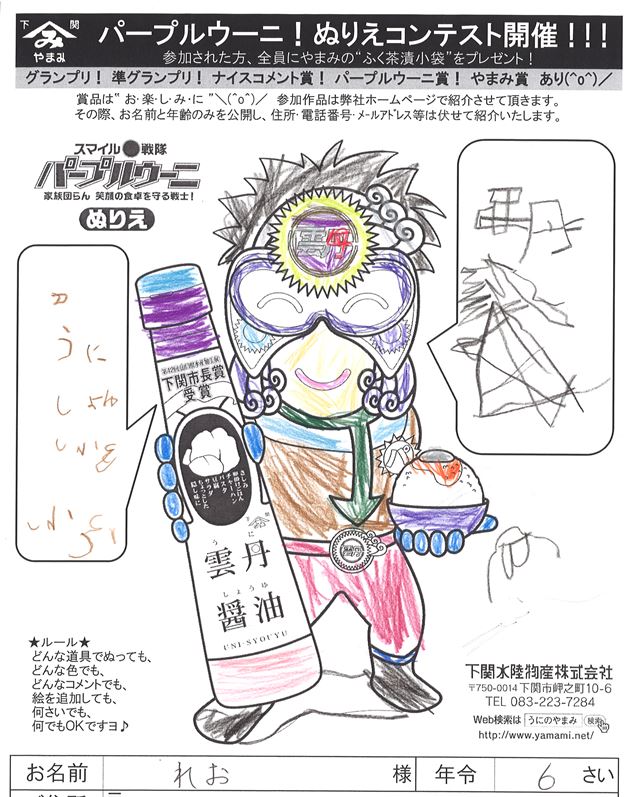 下関
やまみ
パープルウーニ！ぬりえコンテスト開催！！！
参加された方、全員にやまみの“ふく茶漬小袋”をプレゼント！
グランプリ！ 準グランプリ！ ナイスコメント賞！ パープルウーニ賞！ やまみ賞 あり(^o^)／
賞品は“お・楽・し・み・に ”＼(^o^)／ 参加作品は弊社ホームページで紹介させて頂きます。
その際、お名前と年齢のみを公開し、住所・電話番号・メールアドレス等は伏せて紹介いたします。
スマイル●戦隊
パープルウーニ
家族団らん 笑顔の食卓を守る戦士！
ぬりえ
雲丹
雲丹
うに
しょうゆ
下関市長賞
受賞
さしみ
卵かけごはん
チャーハン
パスタ
豆腐
サラダ
ちょっとした
隠し味に
下関
うに
雲丹
しょうゆ
醤油
UNI-SYOUYU
★ルール★
どんな道具でぬっても、
どんな色でも、
どんなコメントでも、
絵を追加しても、
何さいでも、
何でもOKですヨ♪
下関水陸物産株式会社
〒750-0014 下関市岬之町10-6
TEL 083-223-7284
Web検索は うにのやまみ 検索
http://www.yamami.net/
お名前 れお 様 年令 6 さい